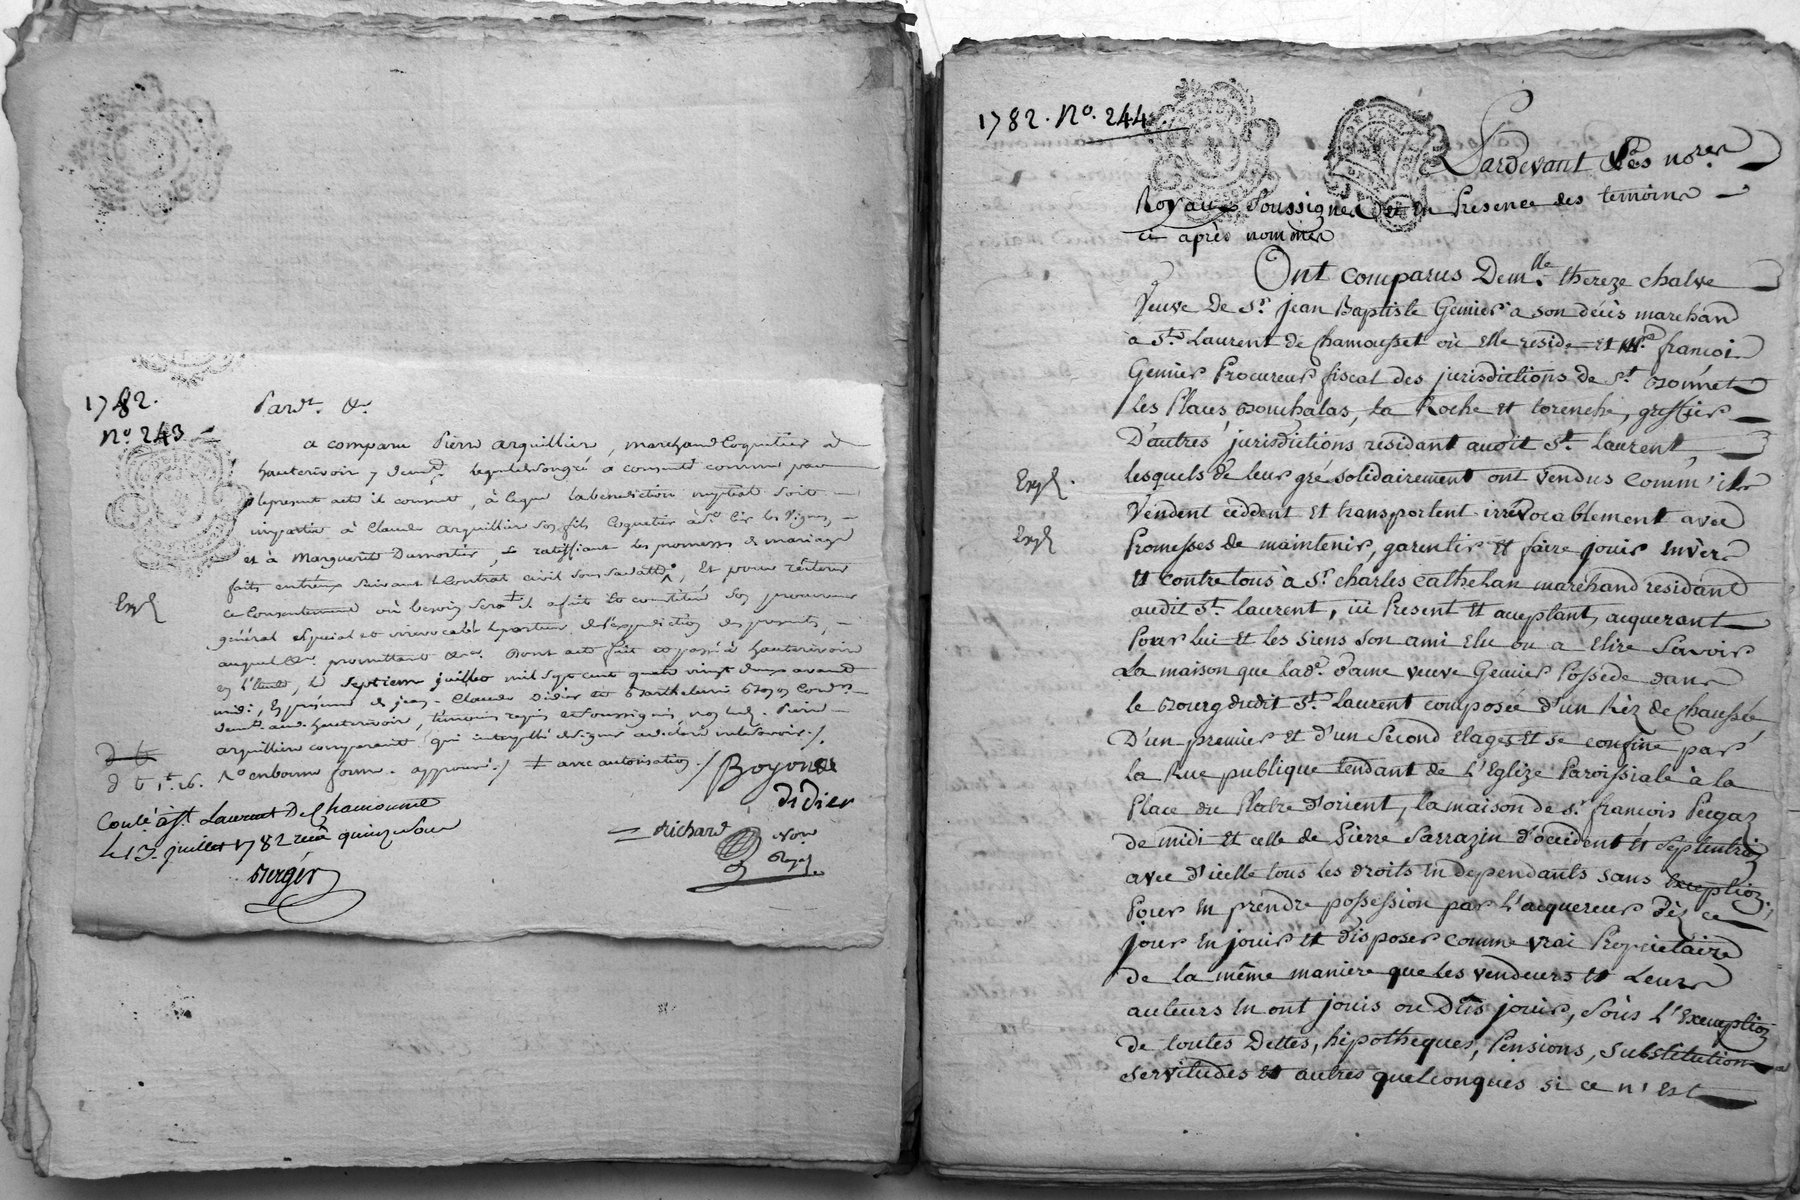 1782.
N.º 243
Pard.t &.
a comparu Pierre arguillière, marchand Coquetier à
hauterivoir y demt. lequel de son gré a consenti comme par
le present acte il consent, à ce que la benediction nuptiale soit
impartie à Claude arguillière son fils Coquetier à St. Cir les Vignes
et à Marguerite Dumortier, ratiffiant les promesses de mariage
faites entr'eux suivant le Contrat civil sous sa datte, Et pour réiterer
ce Consentement où besoin sera il a fait et constitué son procureur
général et special et irrevocable le porteur de l'expedition des presentes,
auquel &a. promettant &a. Dont acte fait et passé à hauterivoir
en l'étude, le septieme juillet mil sept cent quatre vingt deux avant
midi, En présence de jean Claude Didier et Barthelemi Boyon Cord.rs
demt. aud. hauterivoir, témoins requis et soussignés, non led. Pierre
arguillière comparant qui interpellé de signer a declaré ne le savoir ./.
Expé
N.º en bonne forme. approuvé ./. avec autorisation ./.
Boyon
didier
Richard
Not.re
Royal
Conlé à St. Laurent De Chamousset
le 13. juillet 1782 reçû quinze sous
Berger
1782. N.º 244.
Pardevant Les no.res
Royaux Soussignés Et en Presence des temoins
ci après nommés
Ont comparus Dem.lle thereze chalve
Veuve de Sr. jean Baptiste Genier a son décès marchand
a St. Laurent de Chamousset où elle reside Et Mr. françois
Genier Procureur fiscal des jurisdictions de St. Bonnet
les Places Bouchalas, la Roche et torenche, greffier
D'autres jurisdictions, résidant audit St. Laurent,
lesquels de leur gré solidairement ont vendus Comm'ils
Vendent ceddent Et transportent irrévocablement avec
Promesses de maintenir, garentir Et faire jouir Envers
Et contre tous à Sr. charles Cathelan marchand residant
audit St. laurent, ici Present Et acceptant, acquerant
Pour Lui Et les siens son ami Elu ou a Elire Savoir
La maison que lade. dame veuve Genier Possède dans
le Bourg dudit St. Laurent composée d'un Rèz de Chaussée
D'un premier et d'un Second Etages Et se confine par
la Rue publique tendant de L'Eglize Paroissiale à la
Place du Platre d'orient, la maison de Sr. françois Peegaz
de midi Et celle de Pierre Sarrazin d'occident Et Septentrion
avec d'icelle tous les droits En dependants sans Exception.
Pour En prendre possession par L'acquereur Dèz ce
jour En jouir Et disposer comme vrai Proprietaire
de la même manière que les vendeurs Et Leurs
auteurs En ont jouis ou Dûs jouir, Sous L'Exemption
de toutes Dettes, hipotheques, Pensions, Substitutions
Servitudes Et autres quelconques si ce n'Est
Expé.
Expé